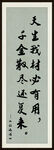 天生我材必有用，
千金散尽还复来。